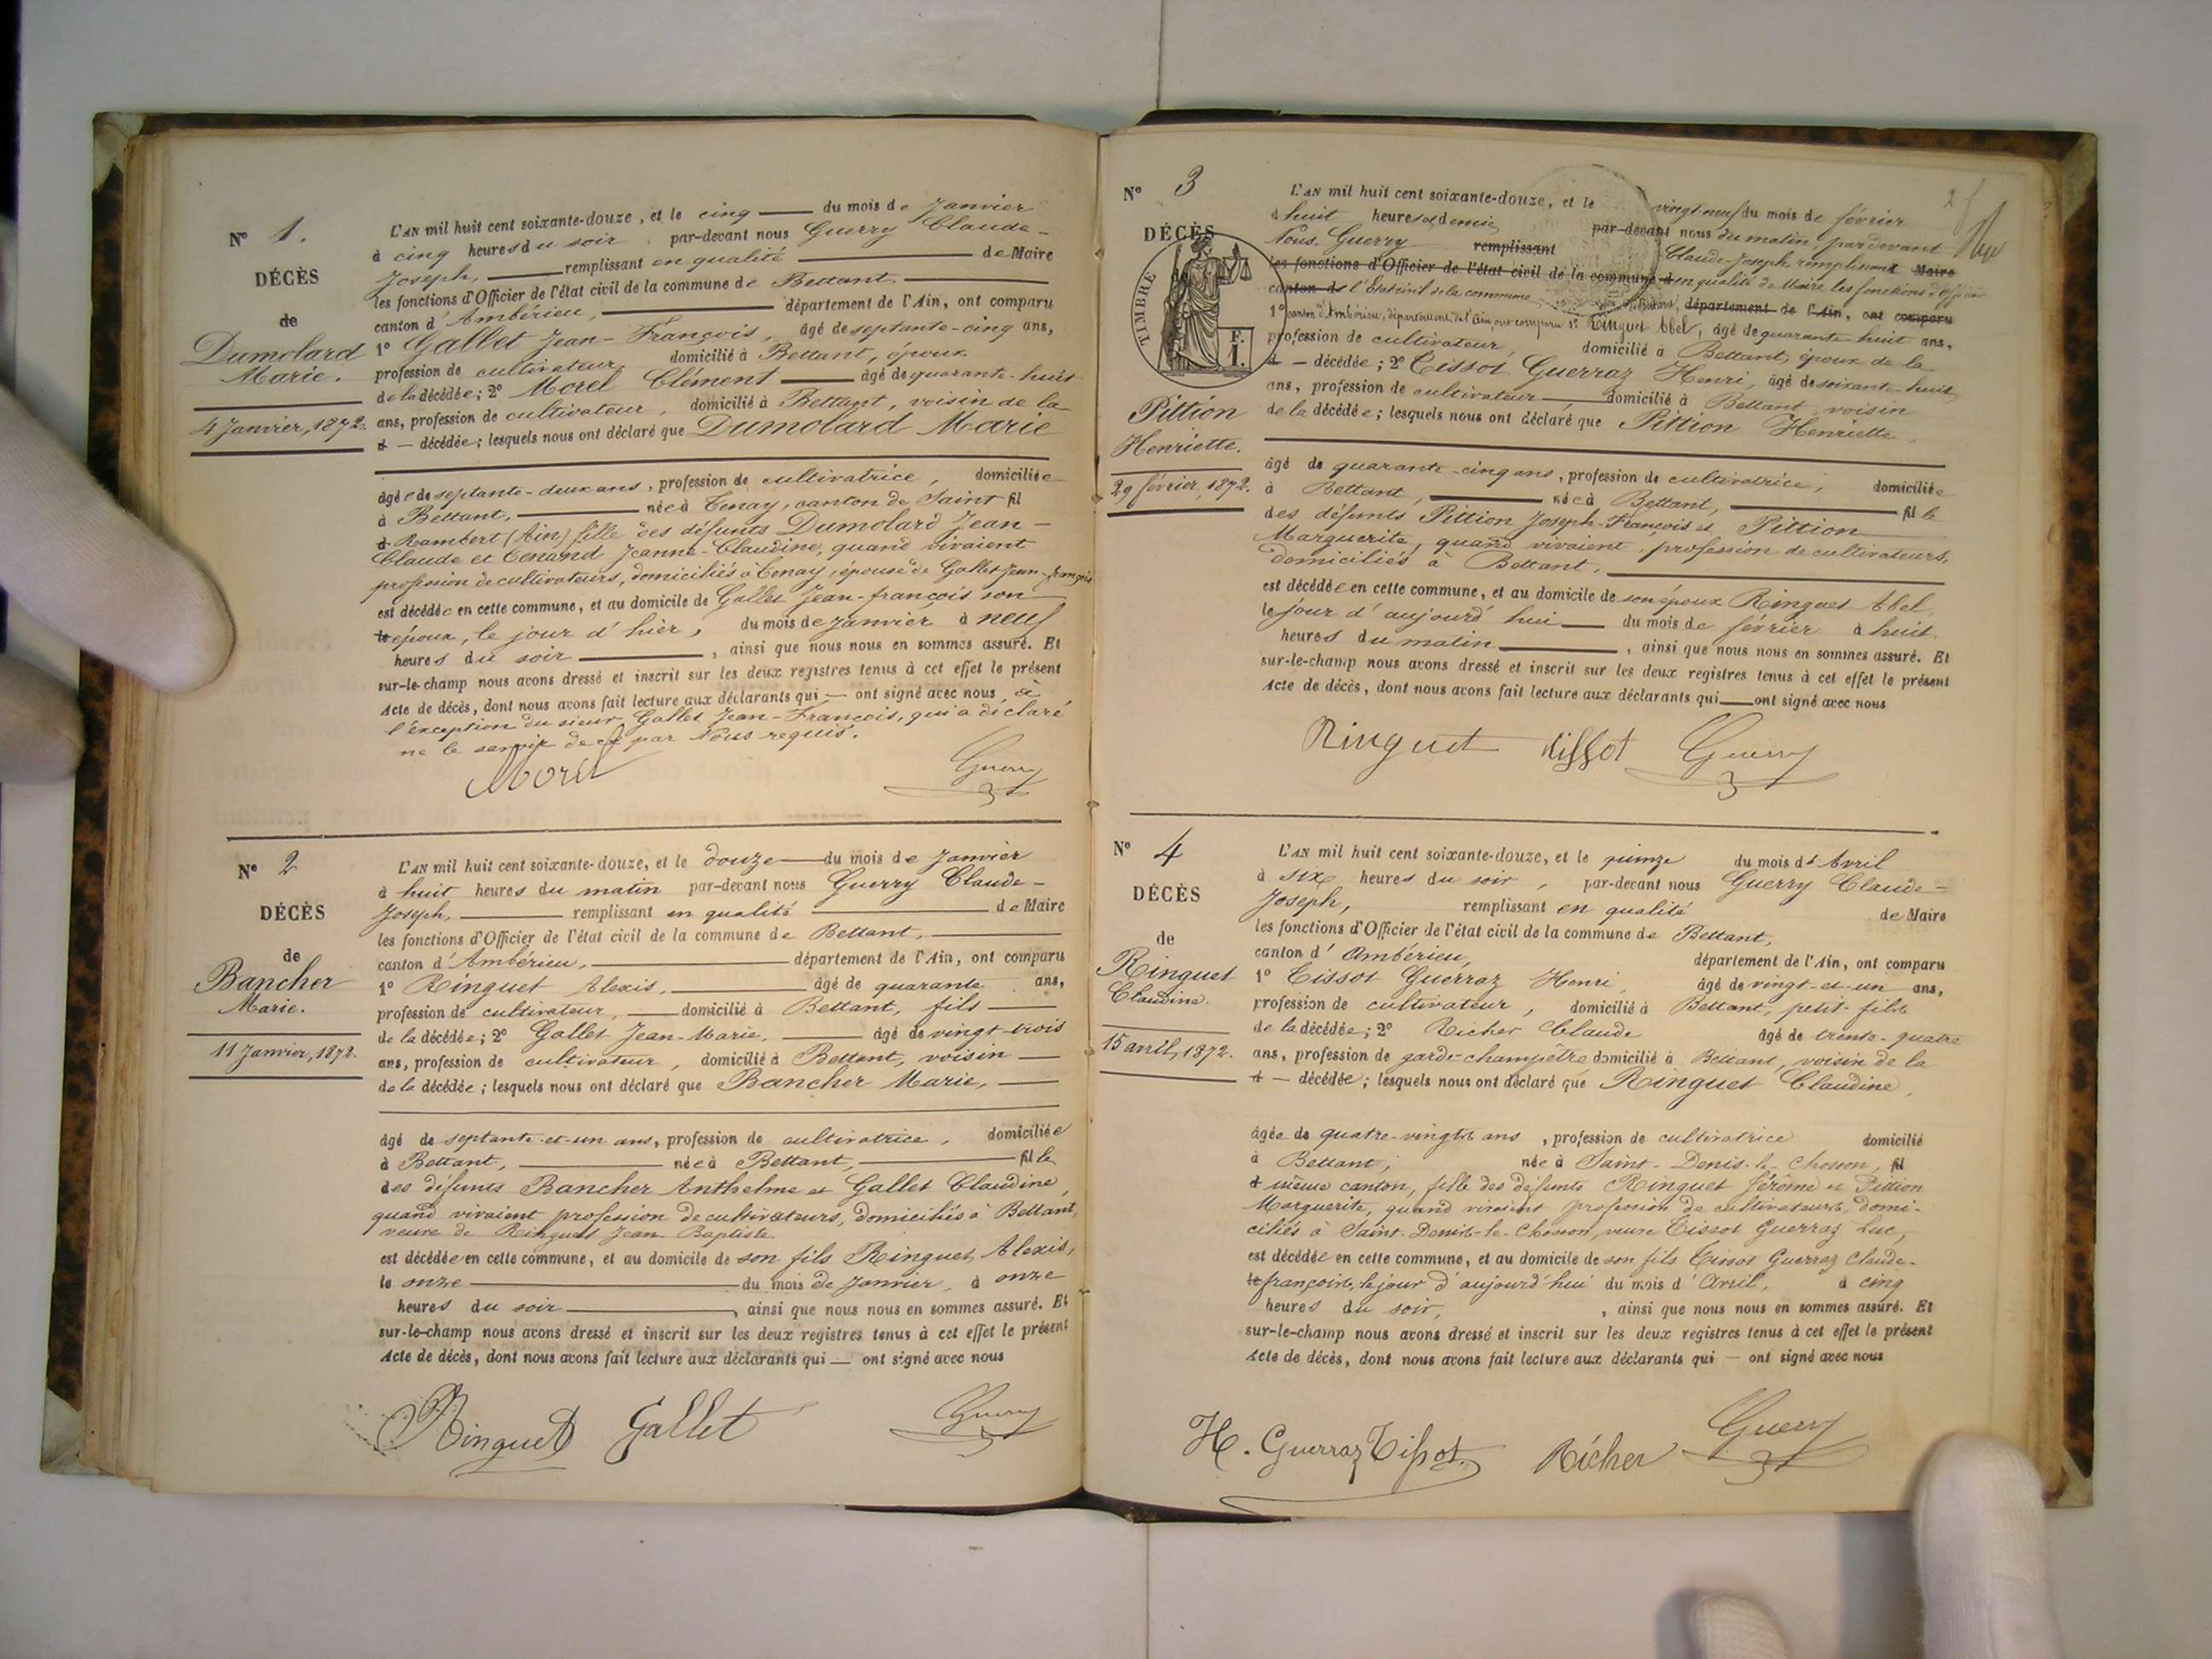 N° 1.
DÉCÈS
de
Dumolard
Marie.
4 Janvier, 1872.
L'AN mil huit cent soixante-douze, et le cinq du mois de Janvier
à cinq heures du soir, par-devant nous Guerry Claude-
Joseph, remplissant en qualité de Maire
les fonctions d'Officier de l'état civil de la commune de Bettant
canton d'Ambérieu, département de l'Ain, ont comparu
1° Gallet Jean-François, âgé de septante-cinq ans,
profession de cultivateur domicilié à Bettant, époux
de la décédée; 2° Morel Clément âgé de quarante-huit
ans, profession de cultivateur, domicilié à Bettant, voisin de la
d — décédée; lesquels nous ont déclaré que Dumolard Marie
âgée de septante-deux ans, profession de cultivatrice, domiciliée
à Bettant, née à Tenay, canton de Saint fil
d Rambert (Ain) fille des défunts Dumolard Jean-
Claude et Tenand Jeanne-Claudine, quand vivaient
profession de cultivateurs, domiciliés à Tenay, épouse de Gallet Jean-François
est décédée en cette commune, et au domicile de Gallet Jean-françois son
le époux, le jour d'hier, du mois de Janvier à neuf
heures du soir, ainsi que nous nous en sommes assuré. Et
sur-le-champ nous avons dressé et inscrit sur les deux registres tenus à cet effet le présent
Acte de décès, dont nous avons fait lecture aux déclarants qui — ont signé avec nous à
l'exception du sieur Gallet Jean-François, qui a déclaré
ne le savoir de ce par Nous requis.
Morel Guerry
N° 2
DÉCÈS
de
Bancher
Marie.
11 Janvier, 1872.
L'AN mil huit cent soixante-douze, et le douze du mois de Janvier
à huit heures du matin par-devant nous Guerry Claude-
Joseph, remplissant en qualité de Maire
les fonctions d'Officier de l'état civil de la commune de Bettant,
canton d'Ambérieu, département de l'Ain, ont comparu
1° Ringuet Alexis, âgé de quarante ans,
profession de cultivateur, domicilié à Bettant, fils
de la décédée; 2° Gallet Jean-Marie, âgé de vingt-trois
ans, profession de cultivateur, domicilié à Bettant, voisin
de la décédée; lesquels nous ont déclaré que Bancher Marie,
âgé de septante-et-un ans, profession de cultivatrice, domiciliée
à Bettant, née à Bettant, fille
des défunts Bancher Anthelme et Gallet Claudine,
quand vivaient profession de cultivateurs, domiciliés à Bettant,
veuve de Ringuet Jean Baptiste
est décédée en cette commune, et au domicile de son fils Ringuet Alexis,
le onze du mois de Janvier, à onze
heures du soir, ainsi que nous nous en sommes assuré. Et
sur-le-champ nous avons dressé et inscrit sur les deux registres tenus à cet effet le présent
Acte de décès, dont nous avons fait lecture aux déclarants qui — ont signé avec nous
Ringuet Gallet Guerry
N° 3
DÉCÈS
TIMBRE
1 F.
Pittion
Henriette.
29 février, 1872.
L'AN mil huit cent soixante-douze, et le vingt-neuf du mois de février
à huit heures et demie par-devant nous du matin, par devant
Nous, Guerry remplissant Claude-Joseph, remplissant Maire
les fonctions d'Officier de l'état civil de la commune d en qualité de Maire, les fonctions d'officier
canton de l'Etat civil de la commune de Bettant, département de l'Ain, ont comparu
1° canton d'Ambérieu, département de l'Ain, ont comparu 1° Ringuet Abel, âgé de quarante huit ans,
profession de cultivateur, domicilié à Bettant, époux de la
d — décédée; 2° Tissot Guerraz Henri, âgé de soixante-huit
ans, profession de cultivateur, domicilié à Bettant, voisin
de la décédée; lesquels nous ont déclaré que Pittion Henriette,
âgé de quarante-cinq ans, profession de cultivatrice, domiciliée
à Bettant, née à Bettant, fille
des défunts Pittion Joseph-François et Pittion
Marguerite, quand vivaient, profession de cultivateurs,
domiciliés à Bettant,
est décédée en cette commune, et au domicile de son époux Ringuet Abel,
le jour d'aujourd'hui du mois de février à huit
heures du matin, ainsi que nous nous en sommes assuré. Et
sur-le-champ nous avons dressé et inscrit sur les deux registres tenus à cet effet le présent
Acte de décès, dont nous avons fait lecture aux déclarants qui — ont signé avec nous
Ringuet tissot Guerry
N° 4
DÉCÈS
de
Ringuet
Claudine.
15 avril, 1872.
L'AN mil huit cent soixante-douze, et le quinze du mois d'Avril
à six heures du soir, par-devant nous Guerry Claude-
Joseph, remplissant en qualité de Maire
les fonctions d'Officier de l'état civil de la commune de Bettant,
canton d'Ambérieu, département de l'Ain, ont comparu
1° Tissot Guerraz Henri, âgé de vingt-et-un ans,
profession de cultivateur, domicilié à Bettant, petit-fils
de la décédée; 2° Richer Claude âgé de trente-quatre
ans, profession de garde-champêtre domicilié à Bettant, voisin de la
d — décédée; lesquels nous ont déclaré que Ringuet Claudine,
âgée de quatre-vingts ans, profession de cultivatrice domicilié
à Bettant, née à Saint-Denis-le-Chosson, fil
d même canton, fille des défunts Ringuet Jérôme et Pittion
Marguerite, quand vivaient profession de cultivateurs, domi-
ciliés à Saint-Denis-le-Chosson, veuve Tissot Guerraz Luc,
est décédée en cette commune, et au domicile de son fils Tissot Guerraz Claude-
le françois, le jour d'aujourd'hui du mois d'Avril, à cinq
heures du soir, ainsi que nous nous en sommes assuré. Et
sur-le-champ nous avons dressé et inscrit sur les deux registres tenus à cet effet le présent
Acte de décès, dont nous avons fait lecture aux déclarants qui — ont signé avec nous
H. Guerraz Tissot Richer Guerry